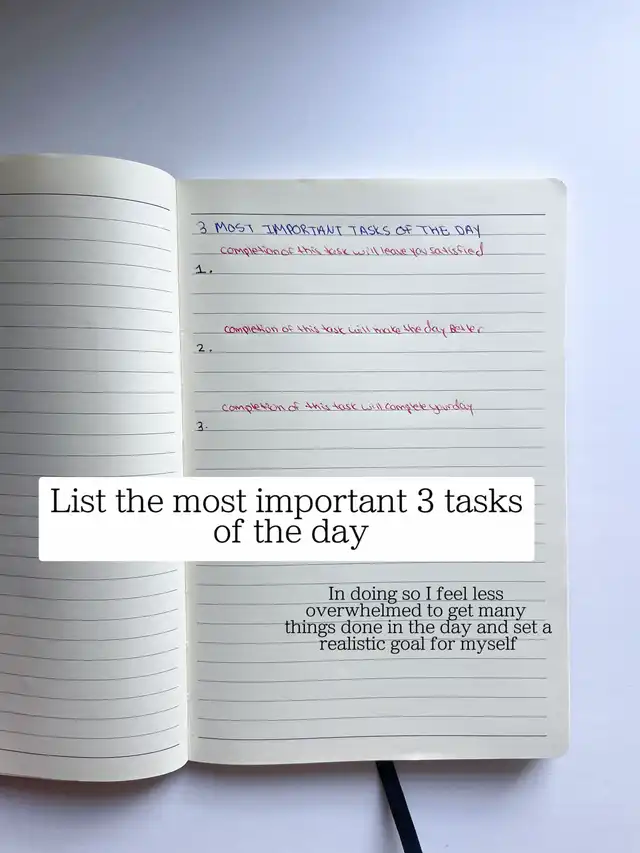 3 MOST IMPORTANT TASKS OF THE DAY
completion of this task will leave you satisfied
1.
completion of this task will make the day Better
2.
completion of this task will complete your day
3.
List the most important 3 tasks
of the day
In doing so I feel less
overwhelmed to get many
things done in the day and set a
realistic goal for myself